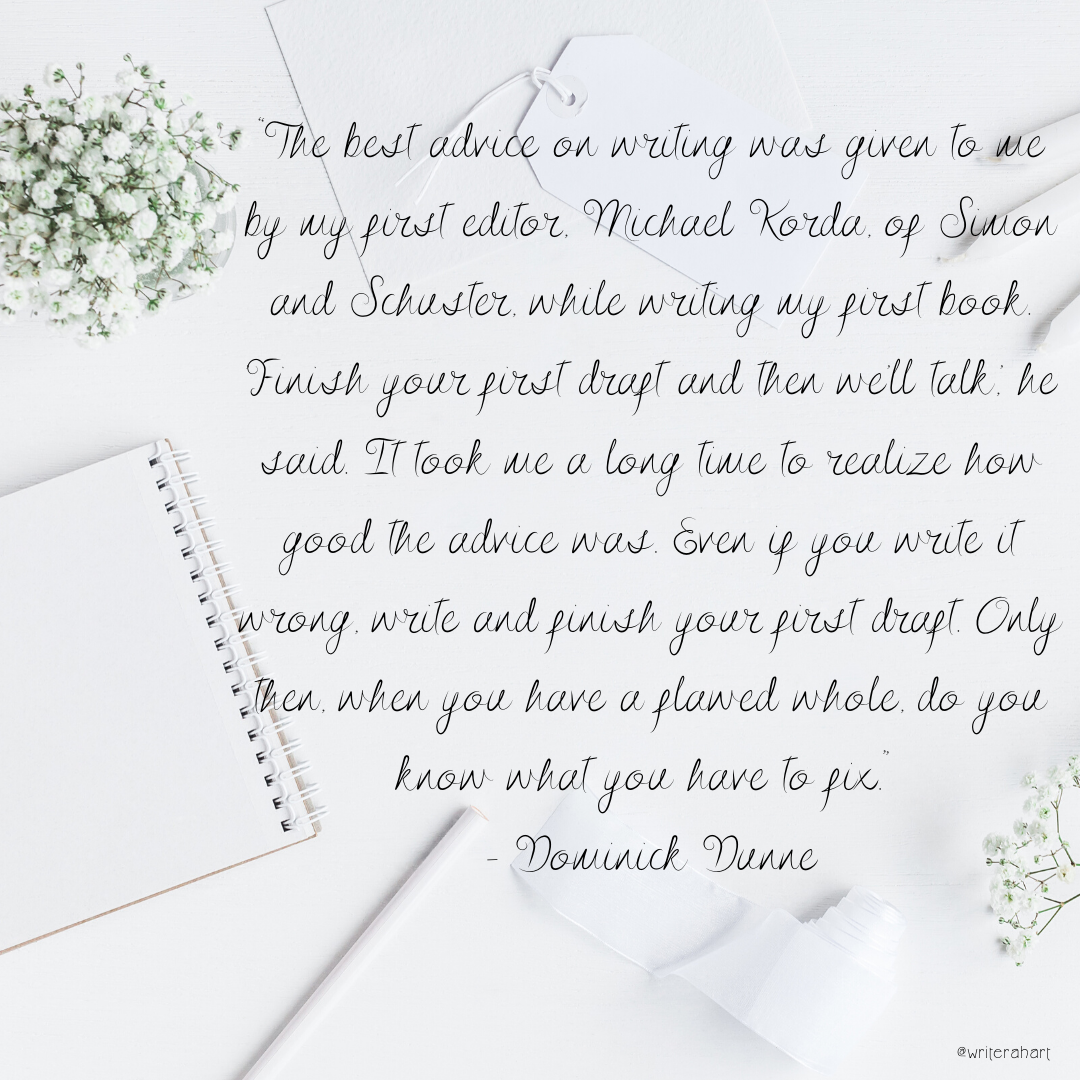 “The best advice on writing was given to me
by my first editor, Michael Korda, of Simon
and Schuster, while writing my first book.
'Finish your first draft and then we'll talk,' he
said. It took me a long time to realize how
good the advice was. Even if you write it
wrong, write and finish your first draft. Only
then, when you have a flawed whole, do you
know what you have to fix.”
- Dominick Dunne
@writerahart